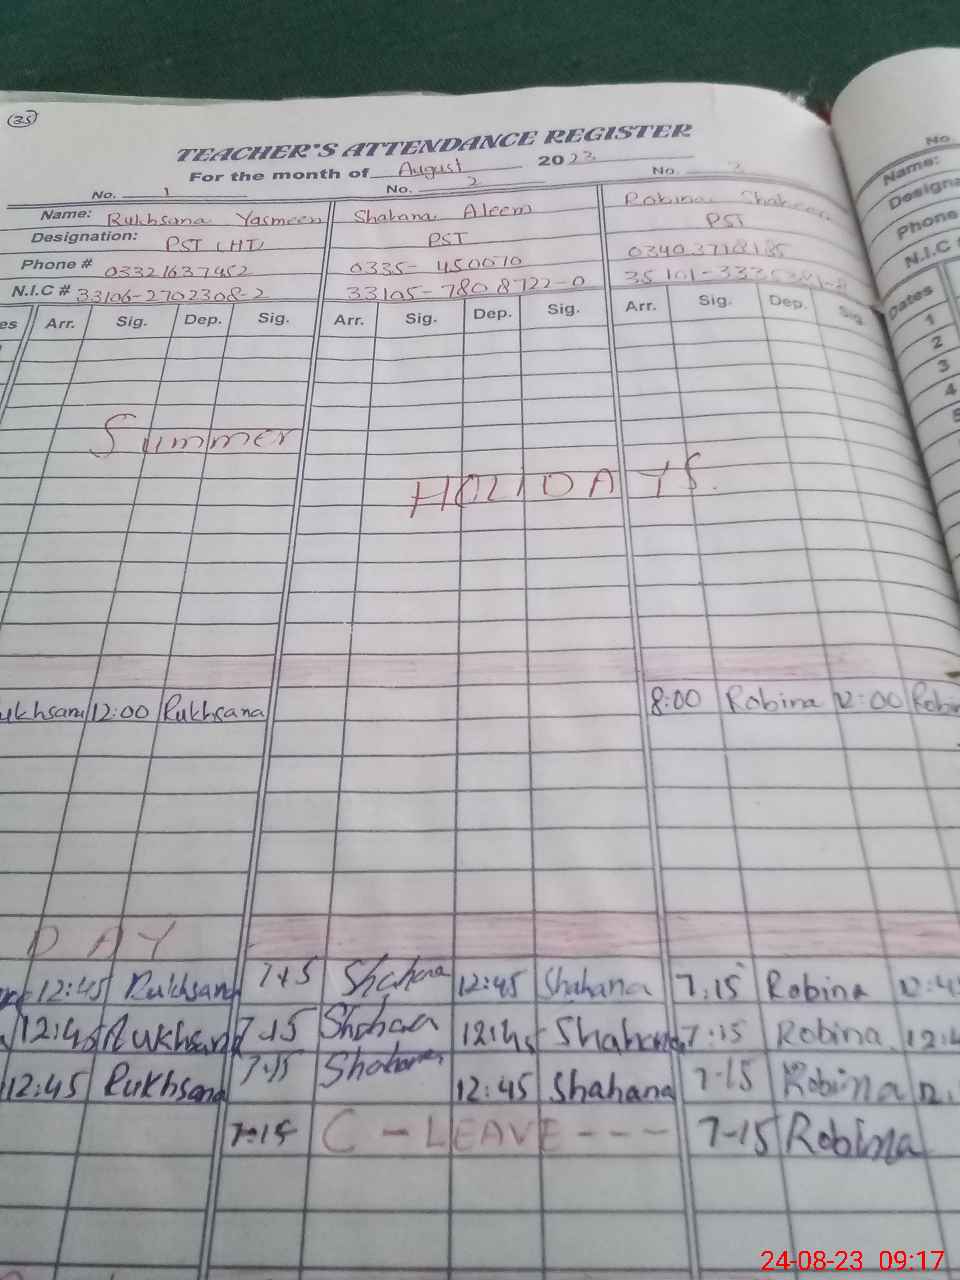 35
TEACHER'S ATTENDANCE REGISTER
For the month of August 2023
No. 1 No. 2 No. 3
Name: Rukhsana Yasmeen Shahana Aleem Robina Shaheen
Designation: PST (HT) PST PST
Phone # 03321637452 0335-450070 03403718185
N.I.C # 33106-2702308-2 33105-7808722-0 35101-
es Arr. Sig. Dep. Sig. Arr. Sig. Dep. Sig. Arr. Sig. Dep. Sig.
Summer
HOLIDAYS.
ukhsana 12:00 Rukhsana 8:00 Robina 12:00 Robin
DAY
12:45 Rukhsana 7:15 Shahana 12:45 Shahana 7:15 Robina 12:4
12:45 Rukhsana 7:15 Shahana 12:45 Shahana 7:15 Robina 12:4
12:45 Rukhsana 7:15 Shahana 12:45 Shahana 7-15 Robina 12.
7-15 C-LEAVE--- 7-15 Robina
No
Name:
Designa
Phone
N.I.C #
Dates
1
2
3
4
5
24-08-23 09:17